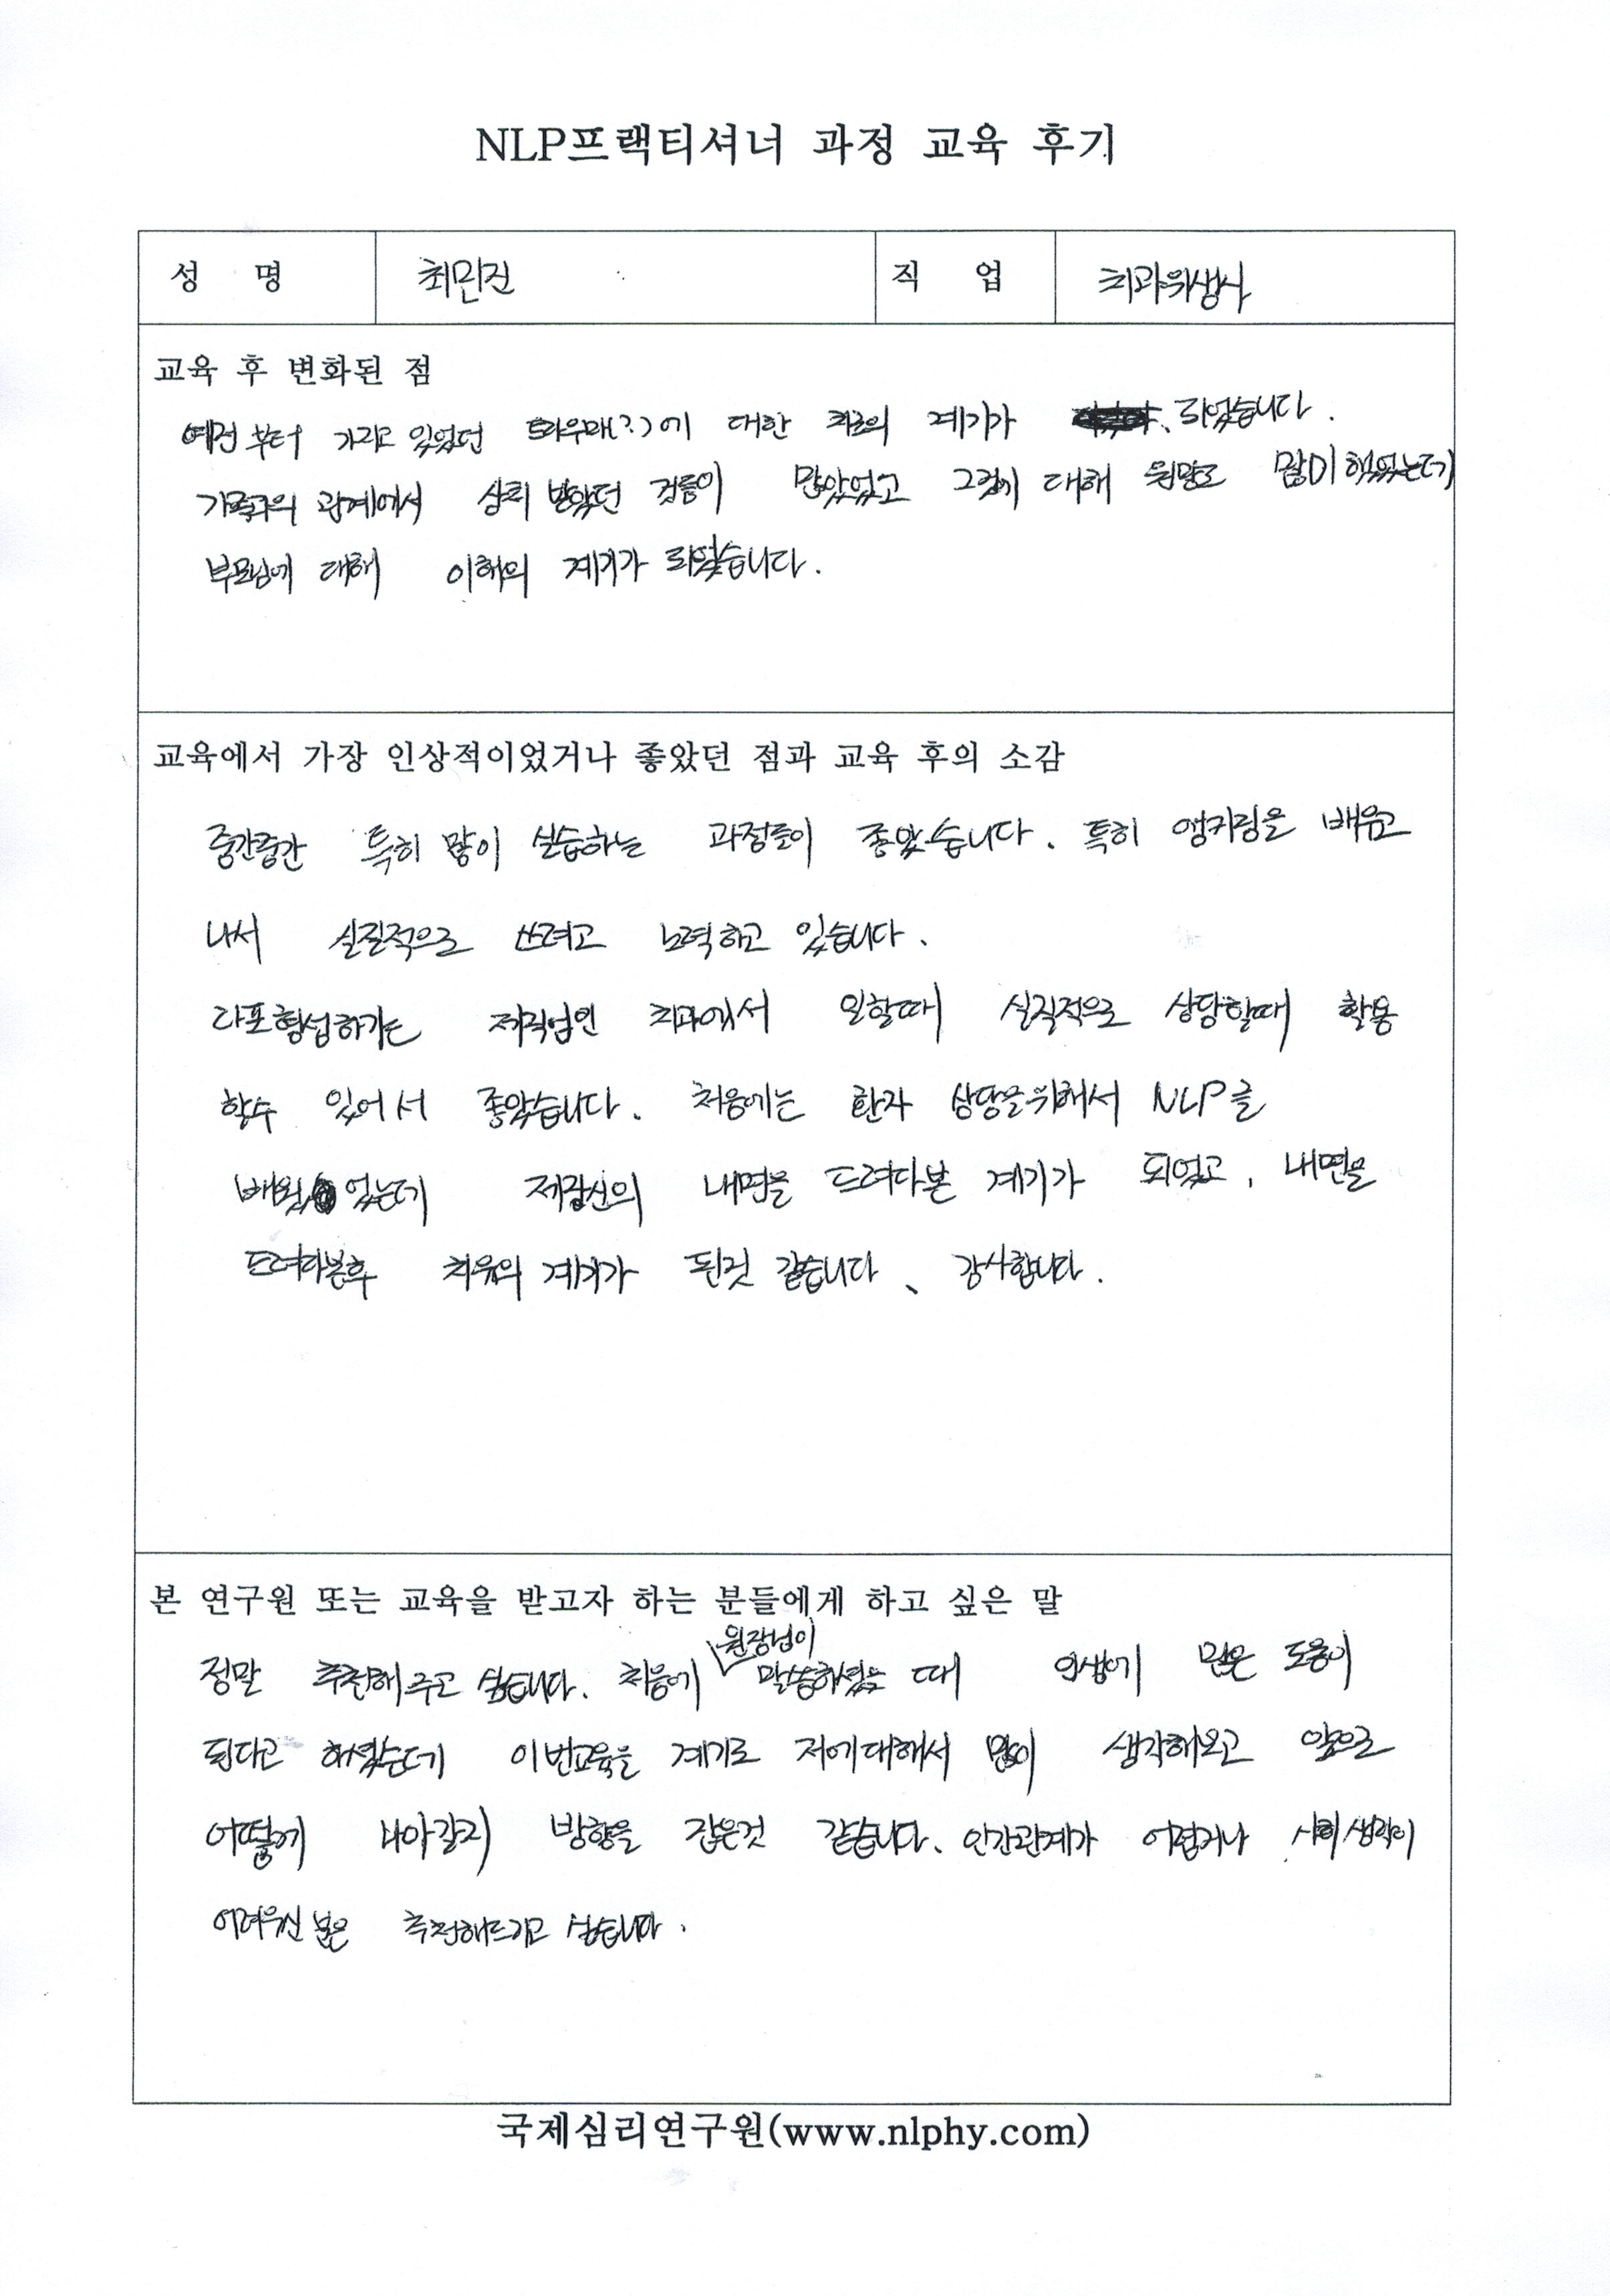 NLP프랙티셔너 과정 교육 후기
성 명 최민진 직 업 치과위생사
교육 후 변화된 점
예전부터 가지고 있었던 트라우마(?)에 대한 치료의 계기가 되었습니다.
가족과의 관계에서 상처 받았던 것들이 많았었고 그것에 대해 원망도 많이 했었는데
부모님에 대해 이해의 계기가 되었습니다.
교육에서 가장 인상적이었거나 좋았던 점과 교육 후의 소감
중간중간 특히 많이 실습하는 과정들이 좋았습니다. 특히 앵커링을 배우고
나서 실질적으로 쓰려고 노력하고 있습니다.
라포형성하기는 제직업인 치과에서 일할때 실질적으로 상담할때 활용
할수 있어서 좋았습니다. 처음에는 환자 상담을위해서 NLP를
배웠었는데 제자신의 내면을 드려다본 계기가 되었고, 내면을
드려다본후 치유의 계기가 된것 같습니다. 감사합니다.
본 연구원 또는 교육을 받고자 하는 분들에게 하고 싶은 말
정말 추천해주고 싶습니다. 처음에 원장님이 말씀하셨을 때 인생에 많은 도움이
된다고 하셨는데 이번교육을 계기로 저에대해서 많이 생각해보고 앞으로
어떻게 나아갈지 방향을 잡은것 같습니다. 인간관계가 어렵거나 사회생활이
어려우신 분은 추천해드리고 싶습니다.
국제심리연구원(www.nlphy.com)